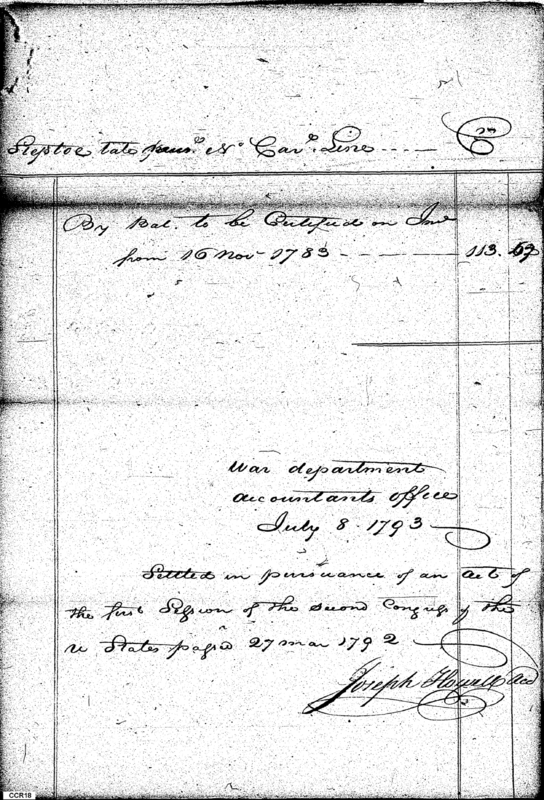 Steptoe late No. Caro. Line
Cr
By Bal. to be Certified on Int
from 16 Nov. 1783 113. 69
War department
accountants office
July 8. 1793
Settled in pursuance of an act of
the first Session of the second Congress of the
u States passed 27 mar 1792
Joseph Howell Acct
CCR18